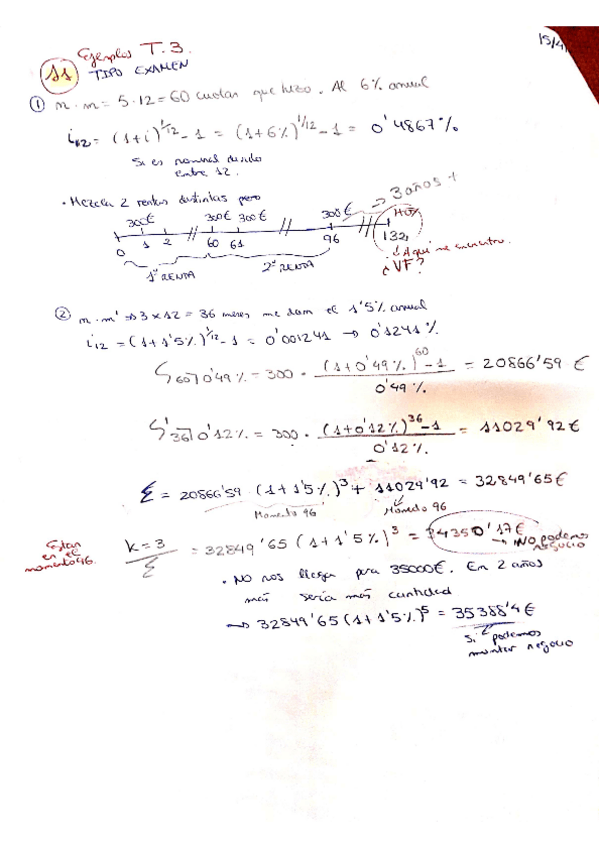 15/4
Ejemplos T.3.
11 TIPO EXAMEN
① n·m = 5·12 = 60 cuotas que hizo. Al 6% anual
i₁₂ = (1+i)^1/12 - 1 = (1+6%)^1/12 - 1 = 0'4867%
Si es nominal
entre 12.
· Mezcla 2 rentas distintas pero
300€ 300€ 300€ 300€ => 3 años + HOY
0 1 2 // 60 61 // 96 // 132
1ª RENTA 2ª RENTA
Aquí me encuentro.
¿VF?
② n·m' => 3x12 = 36 meses me dan el 1'5% anual
i₁₂ = (1+1'5%)^1/12 - 1 = 0'001241 → 0'1241%
S60⌉0'49% = 300 · (1+0'49%)^60 - 1 / 0'49% = 20866'59 €
S'36⌉0'12% = 300 · (1+0'12%)^36 - 1 / 0'12% = 11029'92€
Σ = 20866'59 · (1+1'5%)^3 + 11029'92 = 32849'65€
Momento 96 Momento 96
Están en el momento 96.
k=3 / Σ = 32849'65 (1+1'5%)^3 = 34350'17€
→ NO podemos negocio
· NO nos llega para 35000€. En 2 años
más sería más cantidad
→ 32849'65 (1+1'5%)^5 = 35388'4€
Sí podemos
montar negocio